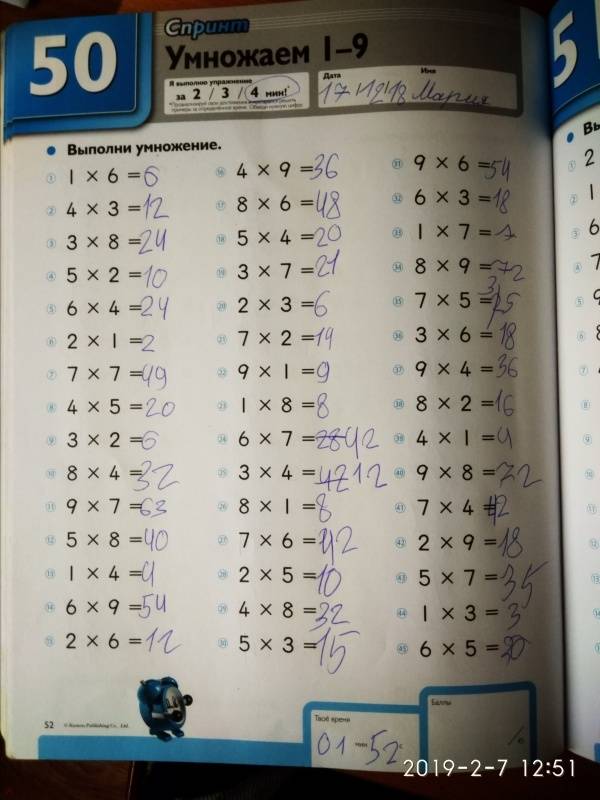 50
Спринт
Умножаем 1–9
Я выполню упражнение
за 2 / 3 / 4 мин!*
Дата
Имя
17/12/18 Мария
5
Вы
• Выполни умножение.
1 1 × 6 = 6
2 4 × 3 = 12
3 3 × 8 = 24
4 5 × 2 = 10
5 6 × 4 = 24
6 2 × 1 = 2
7 7 × 7 = 49
8 4 × 5 = 20
9 3 × 2 = 6
10 8 × 4 = 32
11 9 × 7 = 63
12 5 × 8 = 40
13 1 × 4 = 4
14 6 × 9 = 54
15 2 × 6 = 12
16 4 × 9 = 36
17 8 × 6 = 48
18 5 × 4 = 20
19 3 × 7 = 21
20 2 × 3 = 6
21 7 × 2 = 14
22 9 × 1 = 9
23 1 × 8 = 8
24 6 × 7 = 28 42
25 3 × 4 = 42 12
26 8 × 1 = 8
27 7 × 6 = 42
28 2 × 5 = 10
29 4 × 8 = 32
30 5 × 3 = 15
31 9 × 6 = 54
32 6 × 3 = 18
33 1 × 7 = 7
34 8 × 9 = 72
35 7 × 5 = 35
36 3 × 6 = 18
37 9 × 4 = 36
38 8 × 2 = 16
39 4 × 1 = 4
40 9 × 8 = 72
41 7 × 4 =
42 2 × 9 = 18
43 5 × 7 = 35
44 1 × 3 = 3
45 6 × 5 = 30
52
© Kumon Publishing Co., Ltd.
Твоё время
01 мин 52 с
Баллы
2019-2-7 12:51